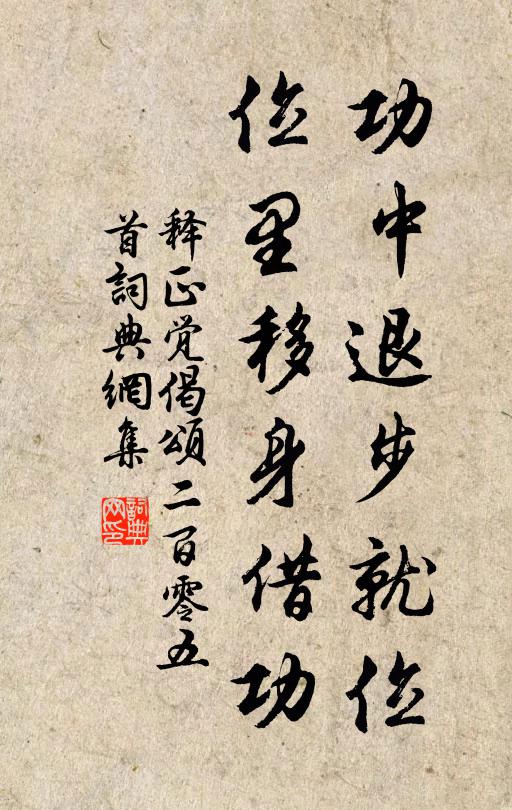 功中退步就位
位里移身借功
释正觉偈颂二百零五
首詞典網集
詞典
网印